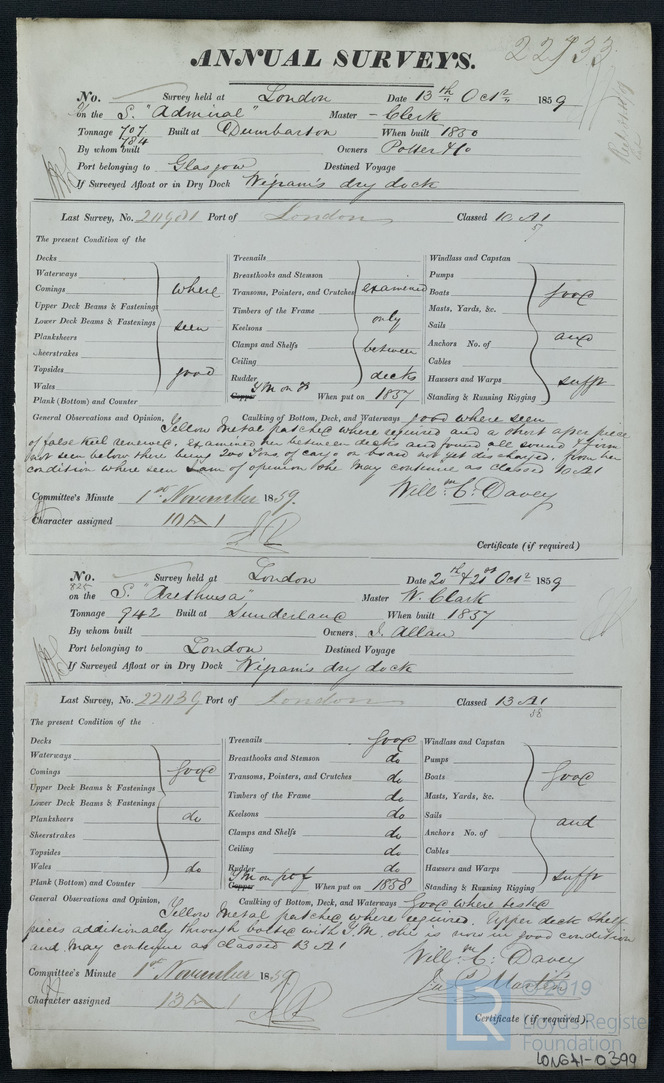 22733
ANNUAL SURVEYS.
No. Survey held at London Date 13th Octr 1859
on the S. "Admiral" Master - Clark
Tonnage 707 784 Built at Dumbarton When built 1850
By whom built Owners Potter & Co
Port belonging to Glasgow Destined Voyage
If Surveyed Afloat or in Dry Dock Wigram's dry dock
Last Survey, No. Port of London Classed 10 A1
5
The present Condition of the
Decks
Waterways
Comings
Upper Deck Beams & Fastenings
Lower Deck Beams & Fastenings
Planksheers
Sheerstrakes
Topsides
Wales
Plank (Bottom) and Counter
where seen good
Treenails
Breasthooks and Stemson
Transoms, Pointers, and Crutches
Timbers of the Frame
Keelsons
Clamps and Shelfs
Ceiling
Rudder
examined only between decks
Copper Y.M on When put on 1857
Windlass and Capstan
Pumps
Boats
Masts, Yards, &c.
Sails
Anchors No. of
Cables
Hawsers and Warps
Standing & Running Rigging
good and sufft
General Observations and Opinion, Caulking of Bottom, Deck, and Waterways good where seen
Yellow Metal patched where required and a short after piece
of false keel renewed. examined her between decks and found all sound &
not seen below there being 200 Tons of cargo on board not yet discharged, from her
condition where seen I am of opinion she may continue as classed 10 A1
Committee's Minute 1st November 1859.
Willm C. Davey
Character assigned 10 A 1
Certificate (if required)
No. 825 Survey held at London Date 20th & 21st Octr 1859
on the S. "Arethusa" Master W. Clark
Tonnage 942 Built at Sunderland When built 1857
By whom built Owners J. Allan
Port belonging to London Destined Voyage
If Surveyed Afloat or in Dry Dock Wigram's dry dock
Last Survey, No. 22039 Port of London Classed 13 A1
58
The present Condition of the
Decks
Waterways
Comings
Upper Deck Beams & Fastenings
Lower Deck Beams & Fastenings
Planksheers
Sheerstrakes
Topsides
Wales
Plank (Bottom) and Counter
good
do
do
Treenails good
Breasthooks and Stemson do
Transoms, Pointers, and Crutches do
Timbers of the Frame do
Keelsons do
Clamps and Shelfs do
Ceiling do
Rudder do
Copper Y.M on When put on 1858
Windlass and Capstan
Pumps
Boats
Masts, Yards, &c.
Sails
Anchors No. of
Cables
Hawsers and Warps
Standing & Running Rigging
good and sufft
General Observations and Opinion, Caulking of Bottom, Deck, and Waterways Good where tested
Yellow Metal patched where required. Upper deck Shelf
pieces additionally through bolted with Y.M. she is now in good condition
and may continue as classed 13 A1
Willm C. Davey
Committee's Minute 1st November 1859
Jas Martin
Character assigned 13 A 1
Certificate (if required)
© 2019
LR
Lloyd's Register
Foundation
LON641-0399